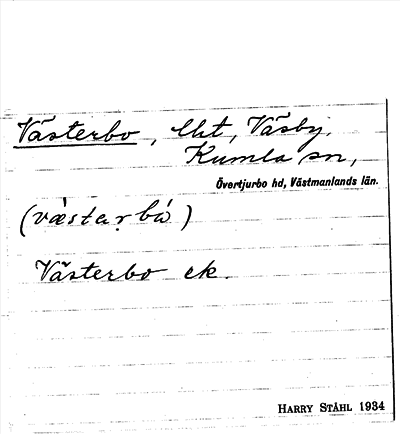 Västerbo, lht, Väsby,
Kumla sn,
Övertjurbo hd, Västmanlands län.
(västarbo)
Västerbo ek.
HARRY STÅHL 1934